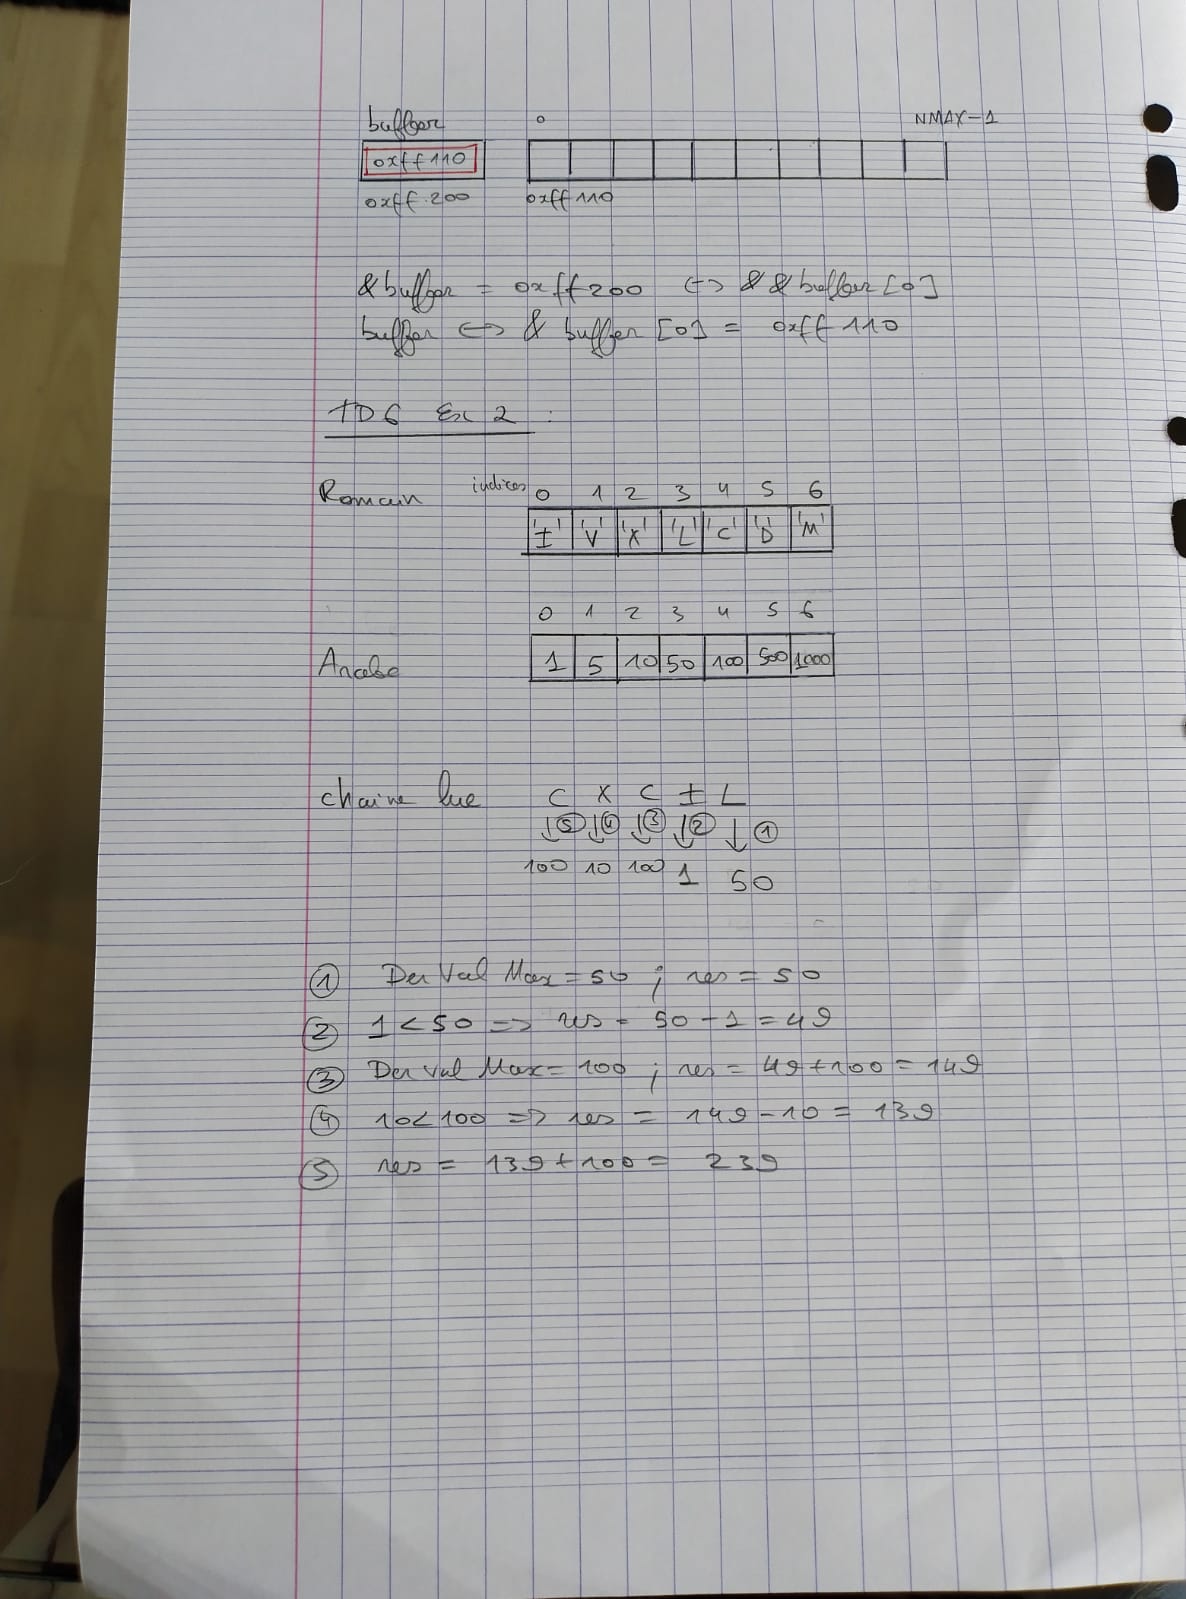 buffer 0 NMAX-1
0xff110
0xff200 0xff110
&buffer = 0xff200 <-> & &buffer[0]
buffer <-> & buffer [0] = 0xff110
TD6 Ex 2 :
Romain indices 0 1 2 3 4 5 6
'I' 'V' 'X' 'L' 'C' 'D' 'M'
0 1 2 3 4 5 6
Arabe 1 5 10 50 100 500 1000
chaine lue C X C I L
↓⑤ ↓④ ↓③ ↓② ↓①
100 10 100 1 50
① Der Val Max = 50 ; res = 50
② 1 < 50 => res = 50 - 1 = 49
③ Der Val Max = 100 ; res = 49 + 100 = 149
④ 10 < 100 => res = 149 - 10 = 139
⑤ res = 139 + 100 = 239